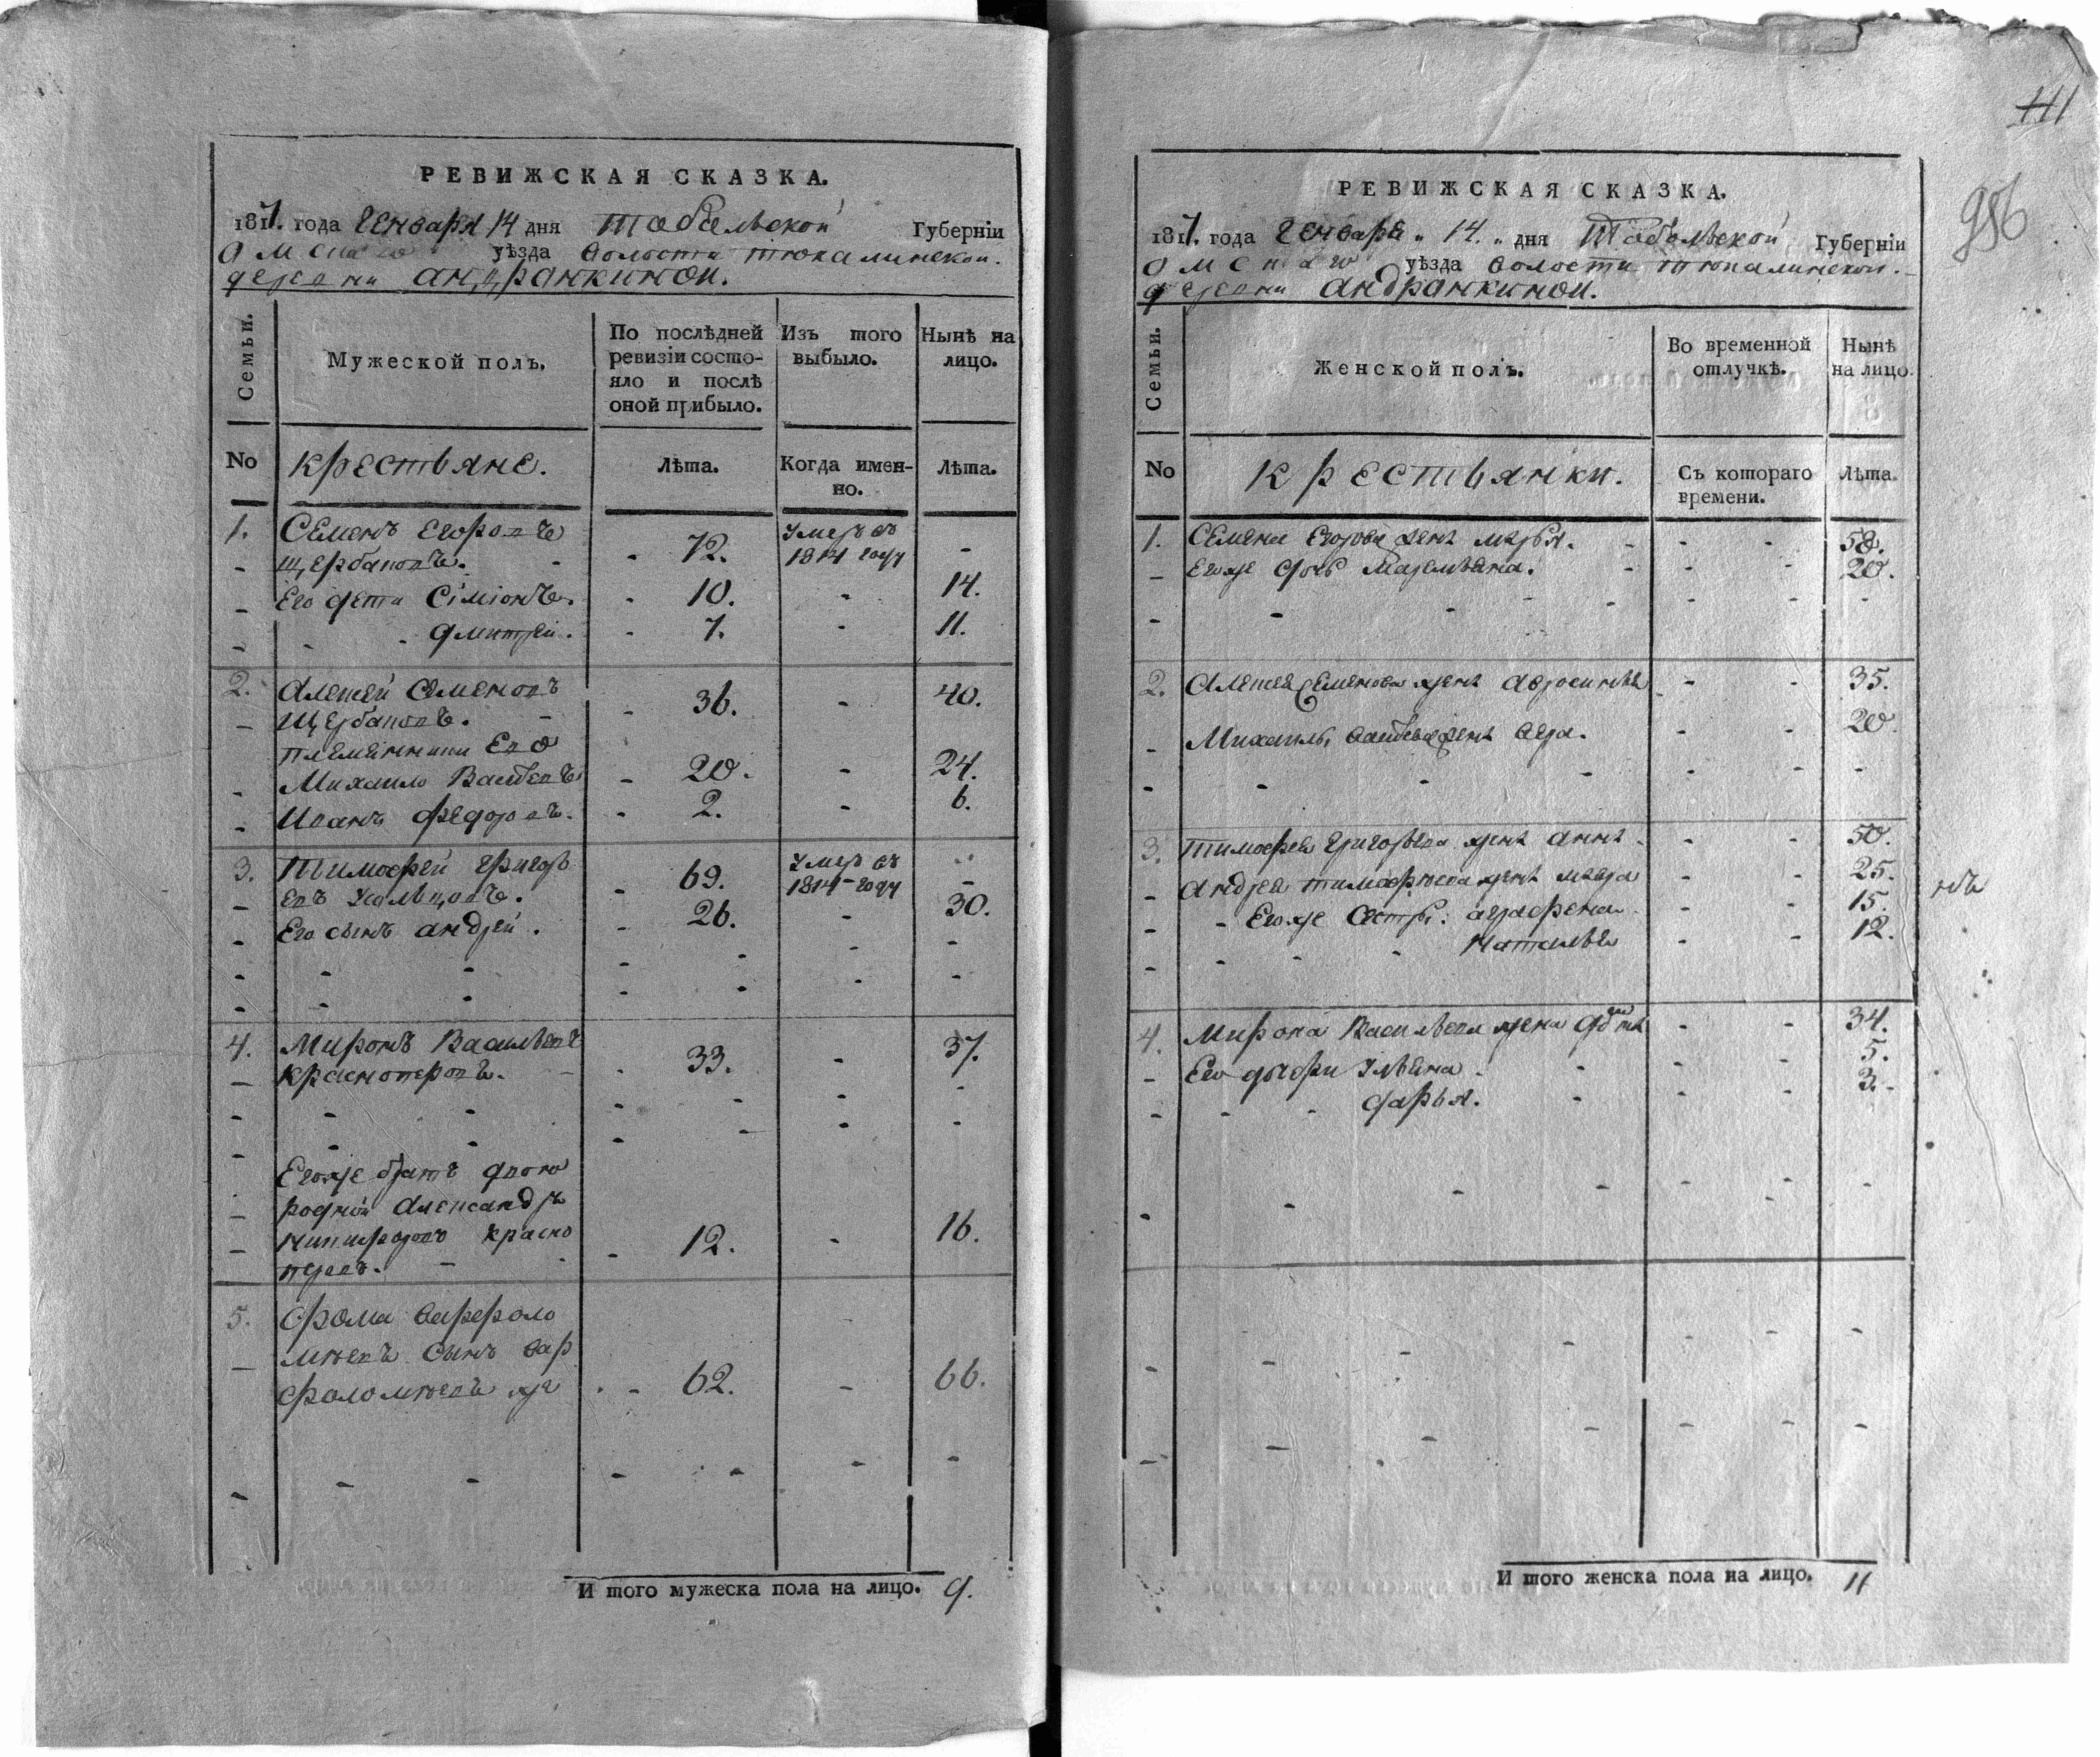 РЕВИЖСКАЯ СКАЗКА.
1817. года Генваря 14 дня Тобольской Губерніи
Омскаго уѣзда волости тюкалинской.
деревни андранкиной.
Семьи.
Мужеской полъ.
По послѣдней ревизіи состо-
яло и послѣ
оной прибыло.
Изъ того выбыло.
Нынѣ на лицо.
No крестьяне. Лѣта. Когда имен-
но. Лѣта.
1. Семенъ Егоровъ
щербаковъ. 72. Умеръ въ
1814 году
Его дети Сіміонъ. 10. 14.
дмитрей. 7. 11.
2. Алексей Семеновъ
Щербаковъ. 36. 40.
племянники Ево
Михаило 20. 24.
Иванъ Федоровъ. 2. 6.
3. Тимофей григорь
евъ Усольцовъ. 69. Умеръ въ
1814 году
Его сынъ андрей. 26. 30.
4. Миронъ Васильевъ
красноперовъ. 33. 37.
Егоже братъ двою
родной Александръ
никифоровъ красно
перовъ. 12. 16.
5. Фома варфоло
мѣевъ сынъ вар
фоломѣевъ же 62. 66.
И того мужеска пола на лицо. 9.
РЕВИЖСКАЯ СКАЗКА.
1817. года Генваря 14. дня Тобольской Губерніи
Омскаго уѣзда волости тюкалинской.
деревни андранкиной.
Семьи.
Женской полъ.
Во временной
отлучкѣ.
Нынѣ
на лицо.
No крестьянки. Съ котораго
времени. Лѣта.
1. Семена Егорова жена марья. 58.
Егоже дочь Маремьяна. 20.
2. Алексея Семенова жена 35.
Михаилы жена вера. 20
3. тимофея григорьева жена анна 50.
андрея тимофѣева жена 25.
Егоже Сестры: аграфена 15.
наталья 12.
4. Мирона Васильева жена 34.
Его дочери Ульяна 5.
дарья. 3.
И того женска пола на лицо. 11
956